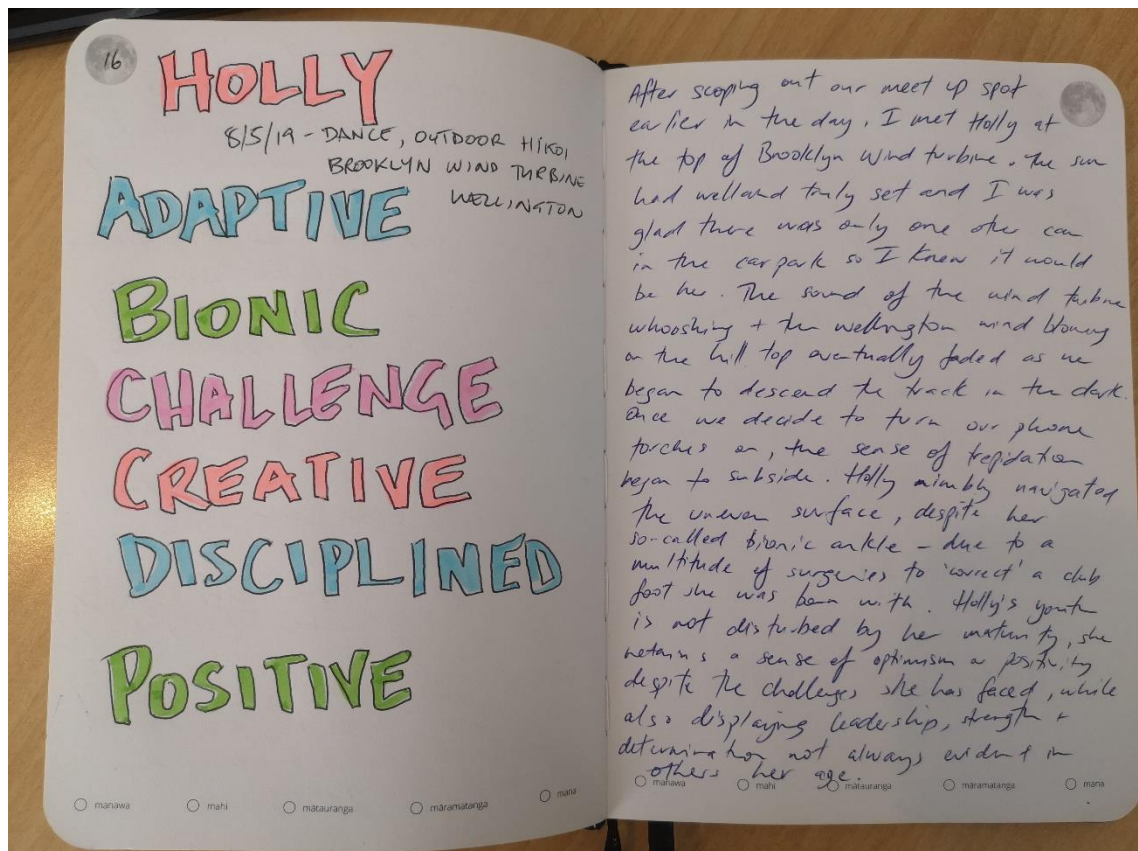 16
HOLLY
8/5/19 - DANCE, OUTDOOR HĪKOI
BROOKLYN WIND TURBINE
WELLINGTON
ADAPTIVE
BIONIC
CHALLENGE
CREATIVE
DISCIPLINED
POSITIVE
manawa
mahi
mātauranga
māramatanga
mana
After scoping out our meet up spot
earlier in the day, I met Holly at
the top of Brooklyn Wind turbine. The sun
had well and truly set and I was
glad there was only one other car
in the car park so I knew it would
be her. The sound of the wind turbine
whooshing + the wellington wind blowing
on the hill top eventually faded as we
began to descend the track in the dark.
Once we decide to turn our phone
torches on, the sense of trepidation
began to subside. Holly nimbly navigated
the uneven surface, despite her
so-called bionic ankle – due to a
multitude of surgeries to 'correct' a club
foot she was born with. Holly's youth
is not disturbed by her maturity, she
retains a sense of optimism & positivity
despite the challenges she has faced, while
also displaying leadership, strength +
determination not always evident in
others her age.
manawa
mahi
mātauranga
māramatanga
mana